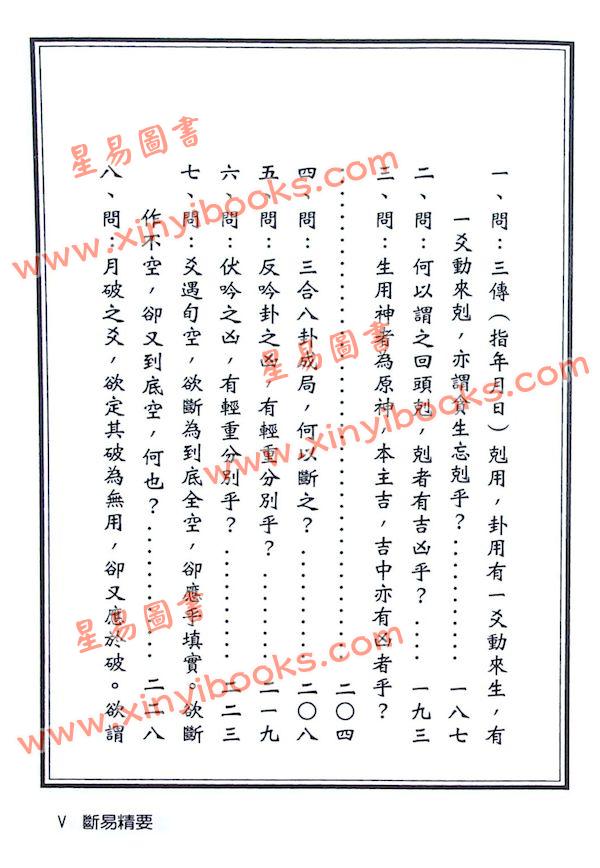 一、問：三傳（指年月日）剋用，卦用有一爻動來生，有
一爻動來剋，亦謂貪生忘剋乎？………… 一八七
二、問：何以謂之回頭剋，剋者有吉凶乎？…… 一九三
三、問：生用神者為原神，本主吉，吉中亦有凶者乎？
………………………………………… 二〇四
四、問：三合八卦成局，何以斷之？………… 二〇八
五、問：反吟卦之凶，有輕重分別乎？………… 二一九
六、問：伏吟之凶，有輕重分別乎？………… 二二三
七、問：爻遇旬空，欲斷為到底全空，卻應乎填實。欲斷
作不空，卻又到底空，何也？………… 二二八
八、問：月破之爻，欲定其破為無用，卻又應於破。欲謂
V 斷易精要
星易圖書
www.xinyibooks.com
星易圖書
www.xinyibooks.com
星易圖書
www.xinyibooks.com